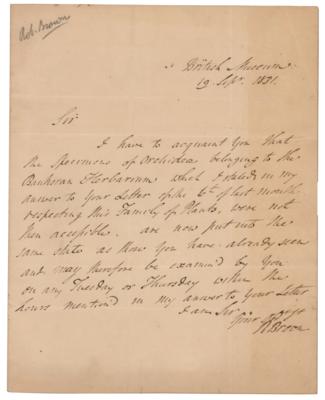 Rob. Brown
British Museum
19 Septr. 1831.
Sir
I have to acquaint you that
the Specimens of Orchideae belonging to the
Banksian Herbarium which I stated in my
answer to your Letter of the 6th of last month
respecting this Family of Plants, were not
then accessible. are now put into the
same state as those you have already seen
and may therefore be examin'd by you
on any Tuesday or Thursday within the
hours mention'd in my answer to your Letter
I am Sir
Your
R Brown